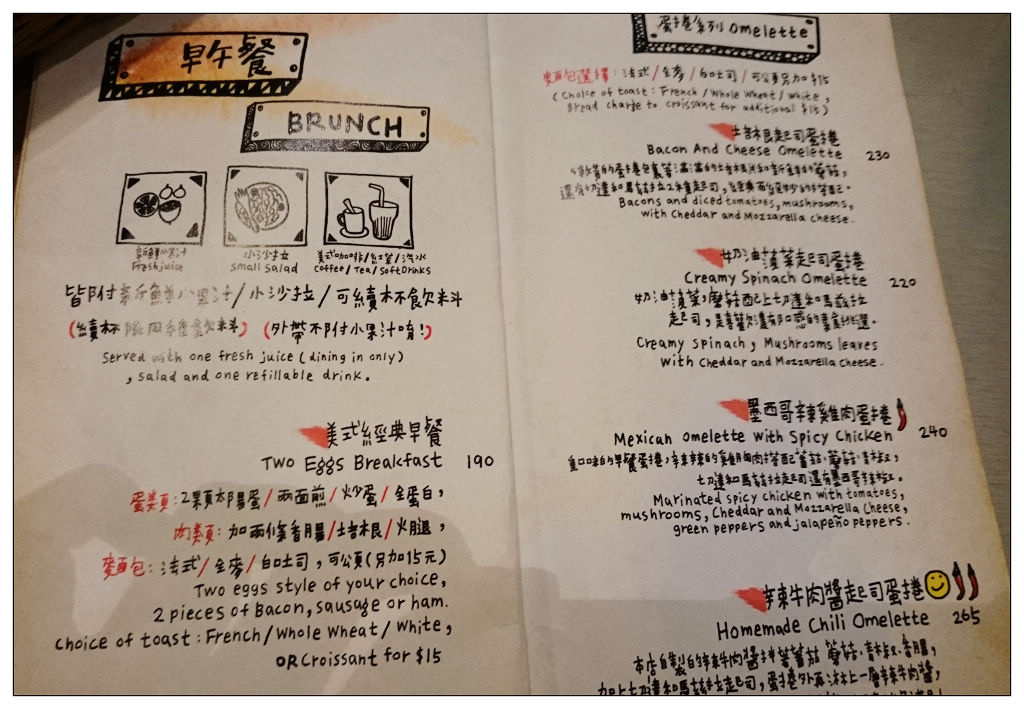 早午餐
BRUNCH
新鮮小果汁
Fresh juice
小沙拉
small salad
美式咖啡/紅茶/汽水
Coffee/Tea/Soft Drinks
皆附新鮮小果汁/小沙拉/可續杯飲料
(外帶不附小果汁唷!)
Served with one fresh juice (dining in only)
, salad and one refillable drink.
美式經典早餐
Two Eggs Breakfast 190
蛋類:2顆太陽蛋/兩面煎/炒蛋/全蛋白,
肉類:加兩條香腸/培根/火腿,
麵包:法式/全麥/白吐司,可頌(另加15元)
Two eggs style of your choice,
2 pieces of Bacon, sausage or ham.
Choice of toast: French/Whole Wheat/White,
OR Croissant for $15
蛋捲系列 Omelette
麵包選擇:法式/全麥/白吐司/可頌另加$15
(Choice of toast: French/Whole Wheat/White,
Bread charge to croissant for additional $15)
培根起司蛋捲
Bacon And Cheese Omelette 230
Bacons and diced tomatoes, mushrooms,
with Cheddar and Mozzarella cheese.
奶油菠菜起司蛋捲
Creamy Spinach Omelette 220
奶油菠菜,蘑菇配上切達和馬茲拉
起司,是喜愛濃郁口感的素食挑選。
Creamy spinach, Mushrooms leaves
with Cheddar and Mozzarella Cheese.
墨西哥辛辣雞肉蛋捲
Mexican Omelette with Spicy Chicken 240
重口味的早餐蛋捲,辛辣的雞胸肉搭配蕃茄,蘑菇,青椒,
切達和馬茲拉起司還有墨西哥辣椒。
Marinated spicy chicken with tomatoes,
mushrooms, Cheddar and Mozzarella Cheese,
green peppers and jalapeño peppers.
辛辣牛肉醬起司蛋捲
Homemade Chili Omelette 265
本店自製的辛辣牛肉醬拌著蕃茄,蘑菇,青椒,香腸,
加上切達和馬茲拉起司,蛋捲外再淋上一層辛辣牛肉醬,